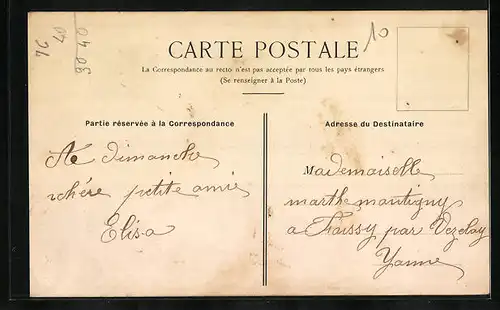 76
40
3040
10
CARTE POSTALE
La Correspondance au recto n'est pas acceptée par tous les pays étrangers
(Se renseigner à la Poste)
Partie réservée à la Correspondance
Adresse du Destinataire
A Dimanche
chére petite amie
Elisa
Mademoiselle
marthe montigny
a Foissy par Vezelay
Yonne